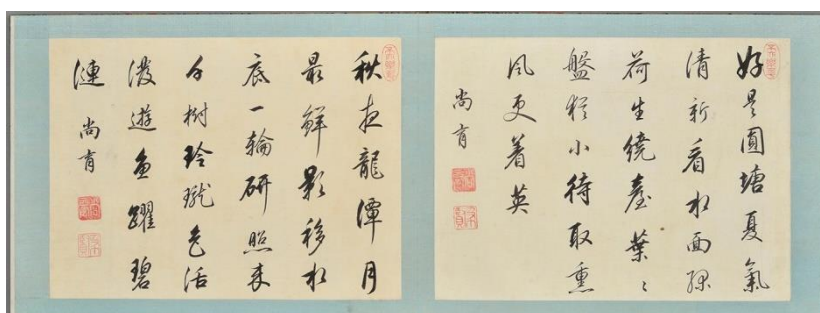 好是圓塘夏氣
清新看水面
荷生繞臺葉〻
盤猶小待取熏
風更着英
尚有
秋夜龍潭月
最鮮影移水
底一輪研照來
千樹玲瓏色活
潑遊魚躍碧
漣 尚有